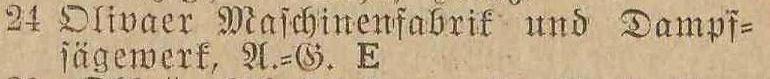 24 Olivaer Maſchinenfabrik und Dampf-
ſägewerk, A.-G. E